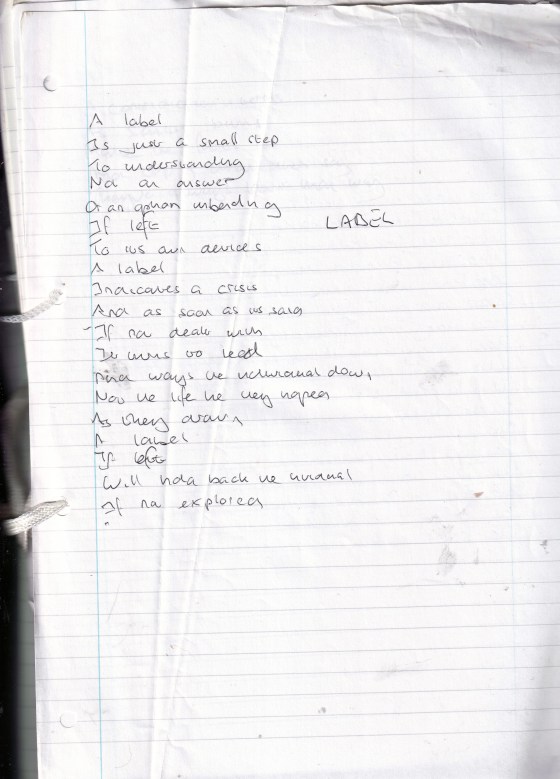 A label
Is just a small step
To understanding
Not an answer
Or an option unbending
If left
LABEL
To its own devices
A label
Indicates a crisis
And as soon as its said
If not dealt with
It turns to lead
ways the individual down
Not the life they hoped
As they drown
A label
If left
Will hold back the individual
If not explored